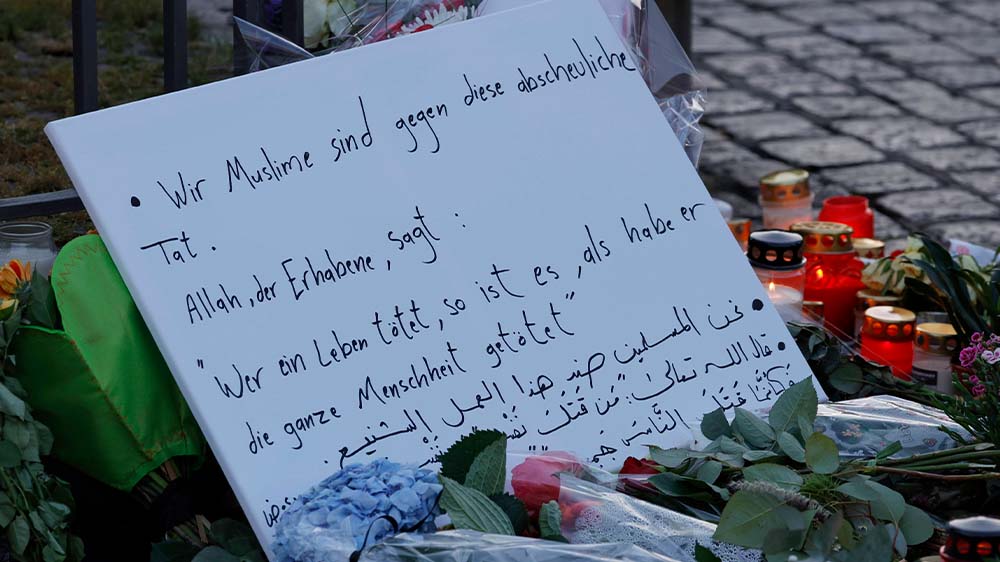 • Wir Muslime sind gegen diese abscheuliche
Tat.
Allah, der Erhabene, sagt:
"Wer ein Leben tötet, so ist es, als habe er
die ganze Menschheit getötet"
• نحن المسلمين ضد هذا العمل الشنيع.
• قال الله تعالى: "مَن قَتَلَ
فَكَأَنَّمَا قَتَلَ النَّاسَ